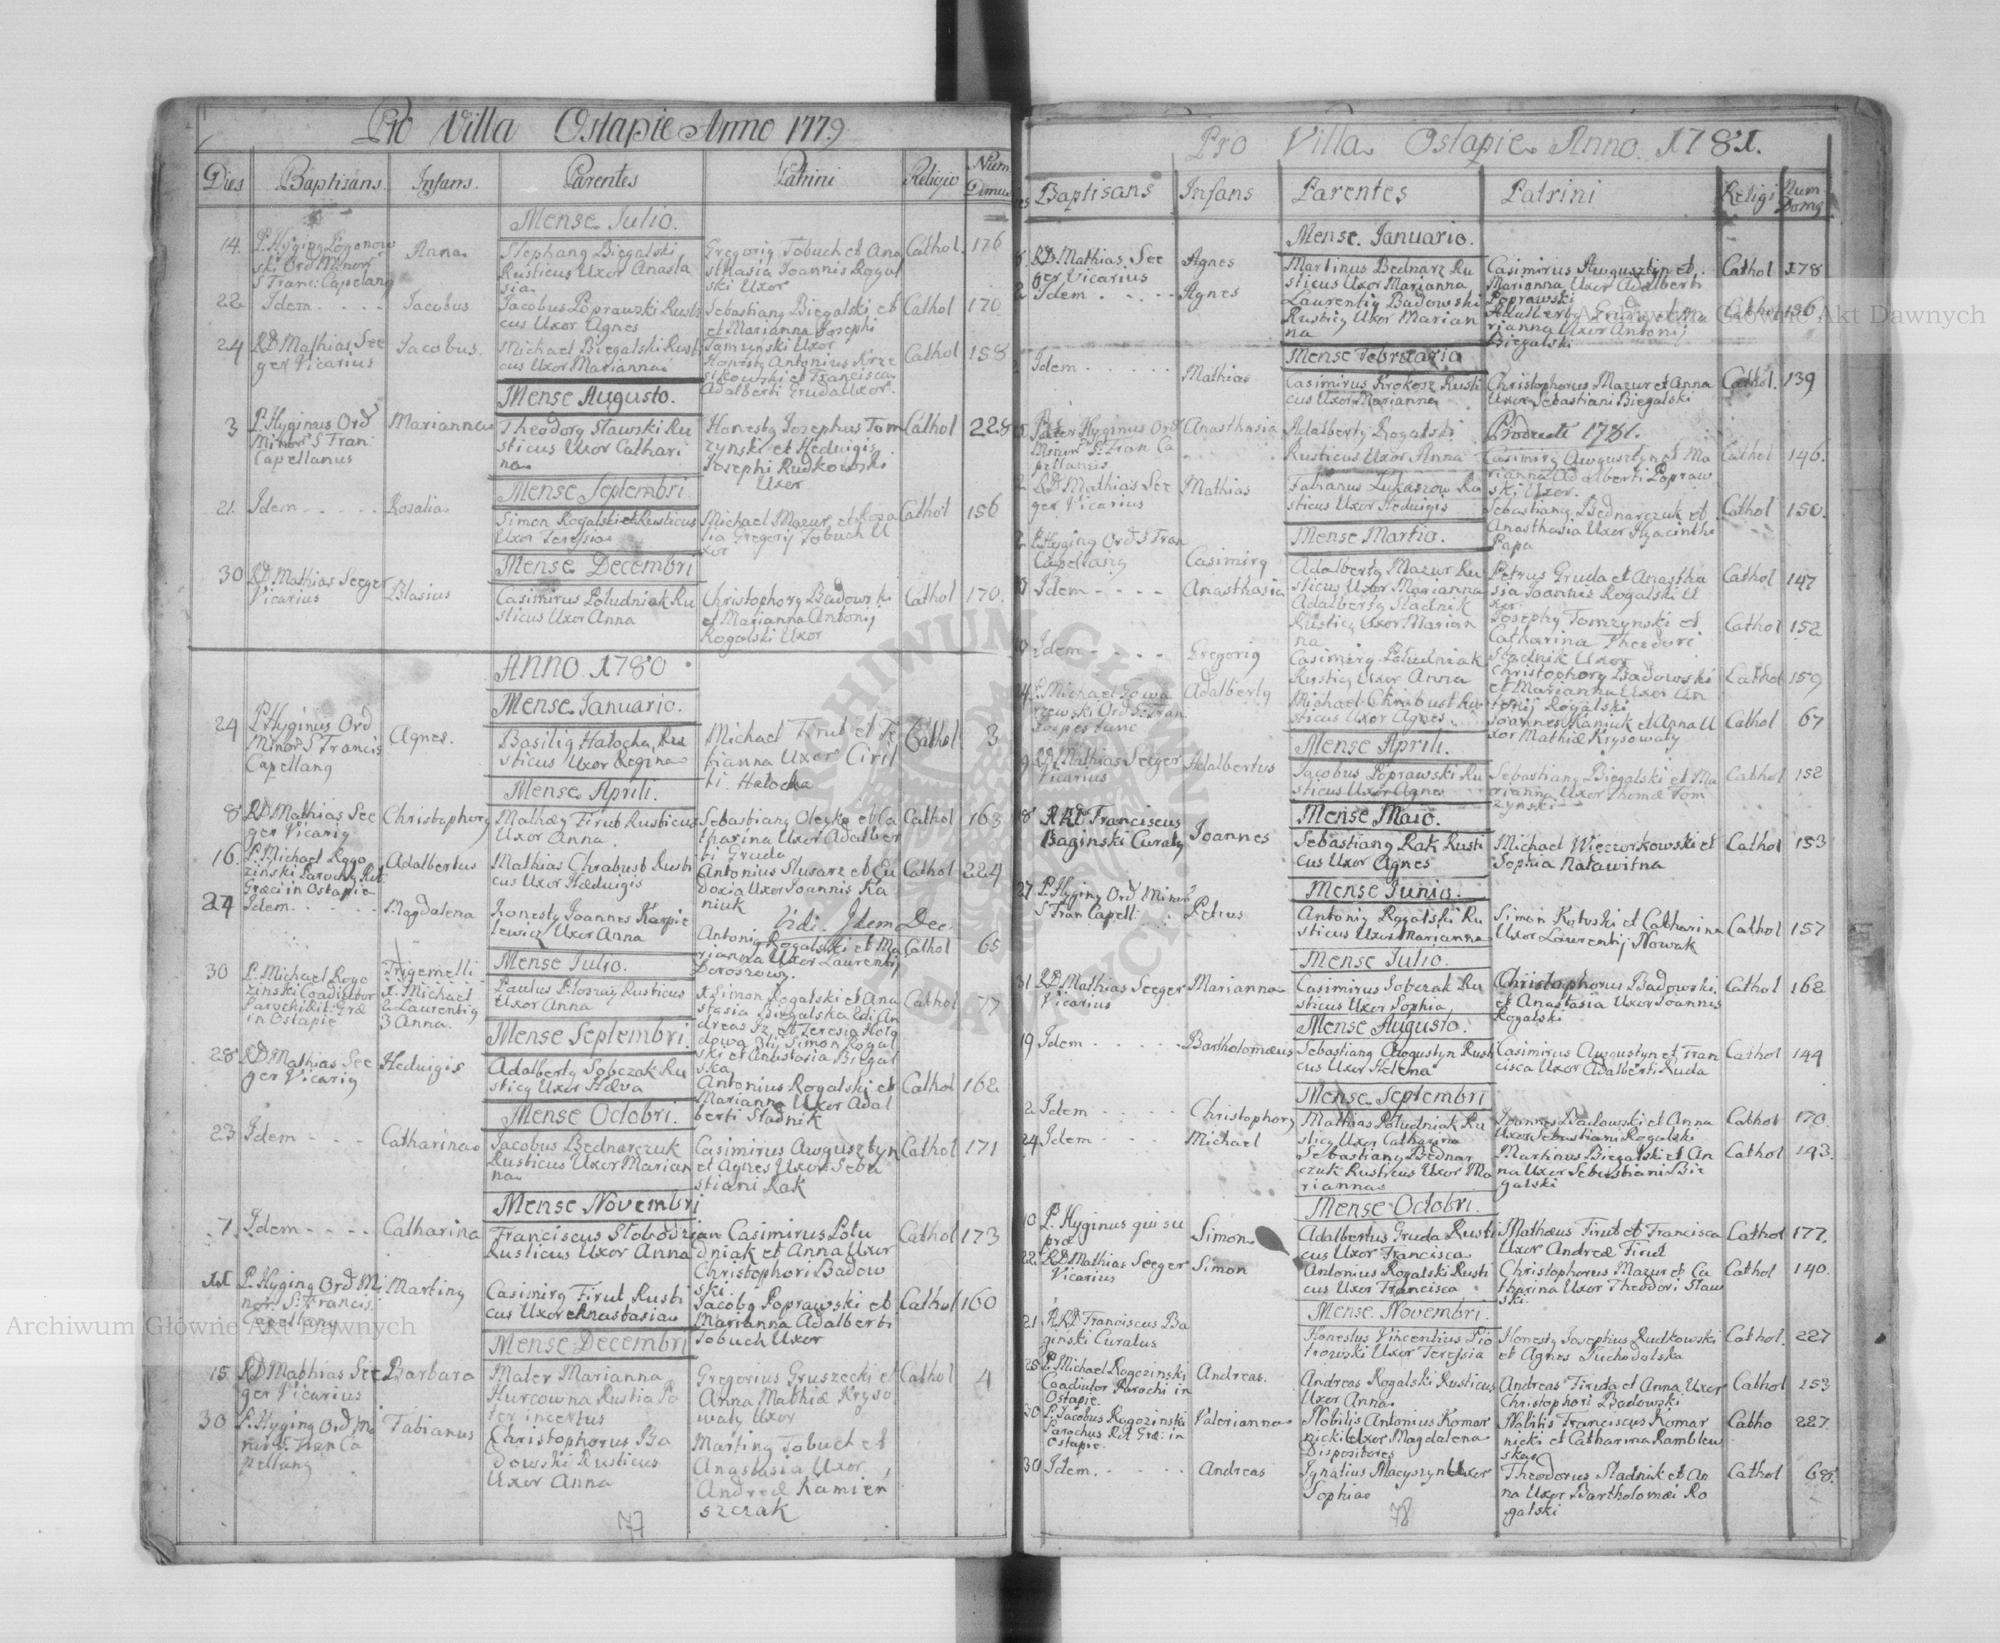 Pro Villa Ostapie Anno 1779
Dies Baptisans. Infans. Parentes Patrini Religio Num Domus
Mense Iulio.
14. P. Hyging Ord Minor S Franc: Capelang Anna Stephang Biegalski Rusticus Uxor Anasta sia Gregorig Tobuch et Ana sthasia Ioannis Rogal ski Uxor Cathol. 176
22 Idem Iacobus Iacobus Poprawski Rusti cus Uxor Agnes Sebastiang Biegalski et et Marianna Iosephi Tomzynski Uxor Cathol 170
24 RD Mathias See ger Vicarius Iacobus. Michael Biegalski Rusti cus Uxor Marianna Honesty Antonius Krze sikowski et Francisca Adalberti Gruda Uxor. Cathol 158
Mense Augusto.
3 P. Hyginus Ord Minor S Fran: Capellanus Marianna Theodorg Stawski Ru sticus Uxor Cathari na Honesty Iosephus Tom zynski et Heduigis Iosephi Rudkowski Uxor Cathol 228
Mense Septembri.
21. Idem Rosalia Simon Rogalski et Rusticus Uxor Teressia Michael Mazur et Rosa lia Gregorij Tobuch U xor Cathol 156
Mense Decembri
30 RD Mathias Seeger Vicarius Blasius Casimirus Południak Ru sticus Uxor Anna Christophorg Badowski et Marianna Antonij Rogalski Uxor Cathol 170.
Anno 1780
Mense Ianuario.
24 P. Hyginus Ord Minor S Francis Capellang Agnes. Basilig Hatocha Ru sticus Uxor Regina Michael Firut et Te tianna Uxor Ciril li Hatocka Cathol 3
Mense Aprili.
8 RD Mathias See ger Vicarig Christophorg Mathæg Firut Rusticus Uxor Anna Sebastiang Oleyko et Ca tharina Uxor Adalber ti Gruda Cathol 163
16. P. Michael Rogo zinski Parochg Rit. Græci in Ostapie Adalbertus Mathias Chrabust Rusti cus Uxor Hæduigis Antonius Slusarz et Eu doxia Uxor Ioannis Ka niuk Cathol 224
Vidi. Idem Dec:
24 Idem Magdalena Honesty Ioannes Karpie lewicz Uxor Anna Antonig Rogalski et Ma rianna Uxor Laurentij Doroszowy. Cathol 65
Mense Iulio.
30 P. Michael Rogo zinski Coadiutor Parochi Rit: Græ in Ostapie Trigemelli 1. Michael 2 Laurentig 3 Anna. Paulus Rusticus Uxor Anna 1. Simon Rogalski et Ana stasia Biegalska 2di An dreas et Teresia 3tij Simon Rogal ski et Anastasia Biegal ska Cathol 77
Mense Septembri.
28 RD Mathias See ger Vicarig Heduigis Adalbertg Sobczak Ru sticg Uxor Hæva Antonius Rogalski et Marianna Uxor Adal berti Sladnik Cathol 162
Mense Octobri.
23 Idem Catharina Iacobus Bednarczuk Rusticus Uxor Marian na Casimirus Awgusztyn et Agnes Uxor Seba stiani Rak Cathol 171
Mense Novembri
7. Idem Catharina Franciscus Słobodzian Rusticus Uxor Anna Casimirus Połu dniak et Anna Uxor Christophori Badow ski. Cathol 173
11 P. Hyging Ord Mi nor: S. Francis. Capellang Marting Casimirg Firut Rusti cus Uxor Anastasia Iacobg Poprawski et Marianna Adalberti Tobuch Uxor Cathol 160
Mense Decembri
15 RD Mathias See ger Vicarius Barbara Mater Marianna Hurcowna Rustica Pa ter incertus Gregorius Gruszecki et Anna Mathiæ Kryso waty Uxor Cathol 4
30 P. Hyging Ord Mi nor S. Fran Ca pellang Fabianus Christophorus Ba dowski Rusticus Uxor Anna Marting Tobuch et Anastasia Uxor Andreæ Kamien szczak
77
Pro Villa Ostapie Anno 1781.
Baptisans Infans Parentes Patrini Religi Num Domg
Mense Ianuario.
RD. Mathias See ger Vicarius Agnes Martinus Bednarz Ru sticus Uxor Marianna Casimirus Awgusztyn et Marianna Uxor Adalberti Poprawski Cathol 178
2 Idem Agnes Laurentig Badowski Rusticg Uxor Marian na Adalbertg Gruda et Ma rianna Uxor Antonij Biegalski Cathol 156
Mense Februario
Idem Mathias Casimirus Krokosz Rusti cus Uxor Marianna Christophorus Mazur et Anna Uxor Sebastiani Biegalski Cathol. 139
Pater Hyginus Ord Minor S: Fran Ca pellanus Anasthasia Adalbertg Rogalski Rusticus Uxor Anna Producti 1781. Casimirg Awgusztyn et Ma rianna Adalberti Popraw ski Uxor. Cathol 146.
2. RD Mathias See ger Vicarius Mathias Fabianus Lukaszow Ru sticus Uxor Heduigis Sebastiang Bednarczuk et Anasthasia Uxor Hyacinthi Papa Cathol 150.
Mense Martio.
2 P. Hyging Ord S Fran Capellang Casimirg Adalbertg Mazur Ru sticus Uxor Marianna Petrus Gruda et Anastha sia Ioannis Rogalski U xor Cathol 147
Idem Anasthasia Adalbertg Sladnik Rusticg Uxor Marian na Iosephg Tomzynski et Catharina Theodori Stadnik Uxor Cathol 152
Idem Gregorig Casimirg Południak Rusticg Uxor Anna Christophorg Badowski et Marianna Uxor An tonij Rogalski Cathol 159
P. Michael Adalbertg Michael Chrabust Ru sticus Uxor Agnes Ioannes Kaniuk et Anna U xor Mathiæ Krysowaty Cathol 67
Mense Aprili.
9 RD Mathias Seeger Vicarius Adalbertus Iacobus Poprawski Ru sticus Uxor Agnes Sebastiang Biegalski et Ma rianna Uxor Thomæ Tom zynski Cathol 152
Mense Maio.
18 Franciscus Baginski Curatg Ioannes Sebastiang Rak Rusti cus Uxor Agnes Michael Wieczorkowski et Sophia Natawitna Cathol 153
Mense Iunio.
27 P. Hyging Ord Minor S Fran Capell: Petrus Antonig Rogalski Ru sticus Uxor Marianna Simon Kotuski et Catharina Uxor Laurentij Nowak Cathol 157
Mense Iulio.
31 RD Mathias Seeger Vicarius Marianna Casimirus Sobczak Ru sticus Uxor Sophia Christophorus Badowski. et Anastasia Uxor Ioannis Rogalski Cathol 162
Mense Augusto.
19 Idem Bartholomæus Sebastiang Awgustyn Rusti cus Uxor Helena Casimirus Awgustyn et Fran cisca Uxor Adalberti Ruda Cathol 144
Mense Septembri
2 Idem Christophorg Mathias Południak Ru sticg Uxor Catharina Ioannes Badowski et Anna Uxor Sebastiani Rogalski Cathol 170.
24 Idem Michael Sebastiang Bednar czuk Rusticus Uxor Ma rianna Martinus Biegalski et An na Uxor Sebastiani Bie galski Cathol 193.
Mense Octobri.
10 P. Hyginus qui su pra Simon Adalbertus Gruda Rusti cus Uxor Francisca Mathæus Firut et Francisca Uxor Andreæ Firut Cathol 177.
22. RD Mathias Seeger Vicarius Simon Antonius Rogalski Rusti cus Uxor Francisca Christophorus Mazur et Ca tharina Uxor Theodori Slaw ski. Cathol 140.
Mense Novembri.
21 Franciscus Ba ginski Curatus Honestus Vincentius Pio trowski Uxor Teressia Honestg Josephus Rudkowski et Agnes Suchodolska Cathol. 227
25 P. Michael Rogozinski Coadiutor Parochi in Ostapie Andreas. Andreas Rogalski Rusticus Uxor Anna Andreas Firuta et Anna Uxor Christophori Badowski Cathol 153
30 P. Jacobus Rogozinski Parochus Rit Græ: in Ostapie Valerianna Nobilis Antonius Komar nicki Uxor Magdalena Dispositores Nobilis Franciscus Komar nicki et Catharina Ramblew ska Catho 227.
30 Idem. Andreas Ignatius Macyszyn Uxor Sophia Theodorus Sladnik et An na Uxor Bartholomæi Ro galski Cathol 68.
78
Archiwum Główne Akt Dawnych
Archiwum Główne Akt Dawnych
ARCHIWUM GŁÓWNE AKT DAWNYCH